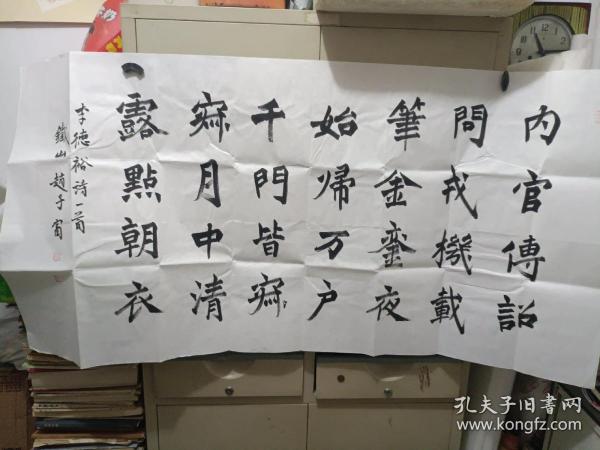 内官傳詔
問戎機載
筆金銮夜
始歸万户
千門皆寂
寂月中清
露點朝衣
李德裕诗一首
鐵山趙子
孔夫子旧书网
www.kongfz.com